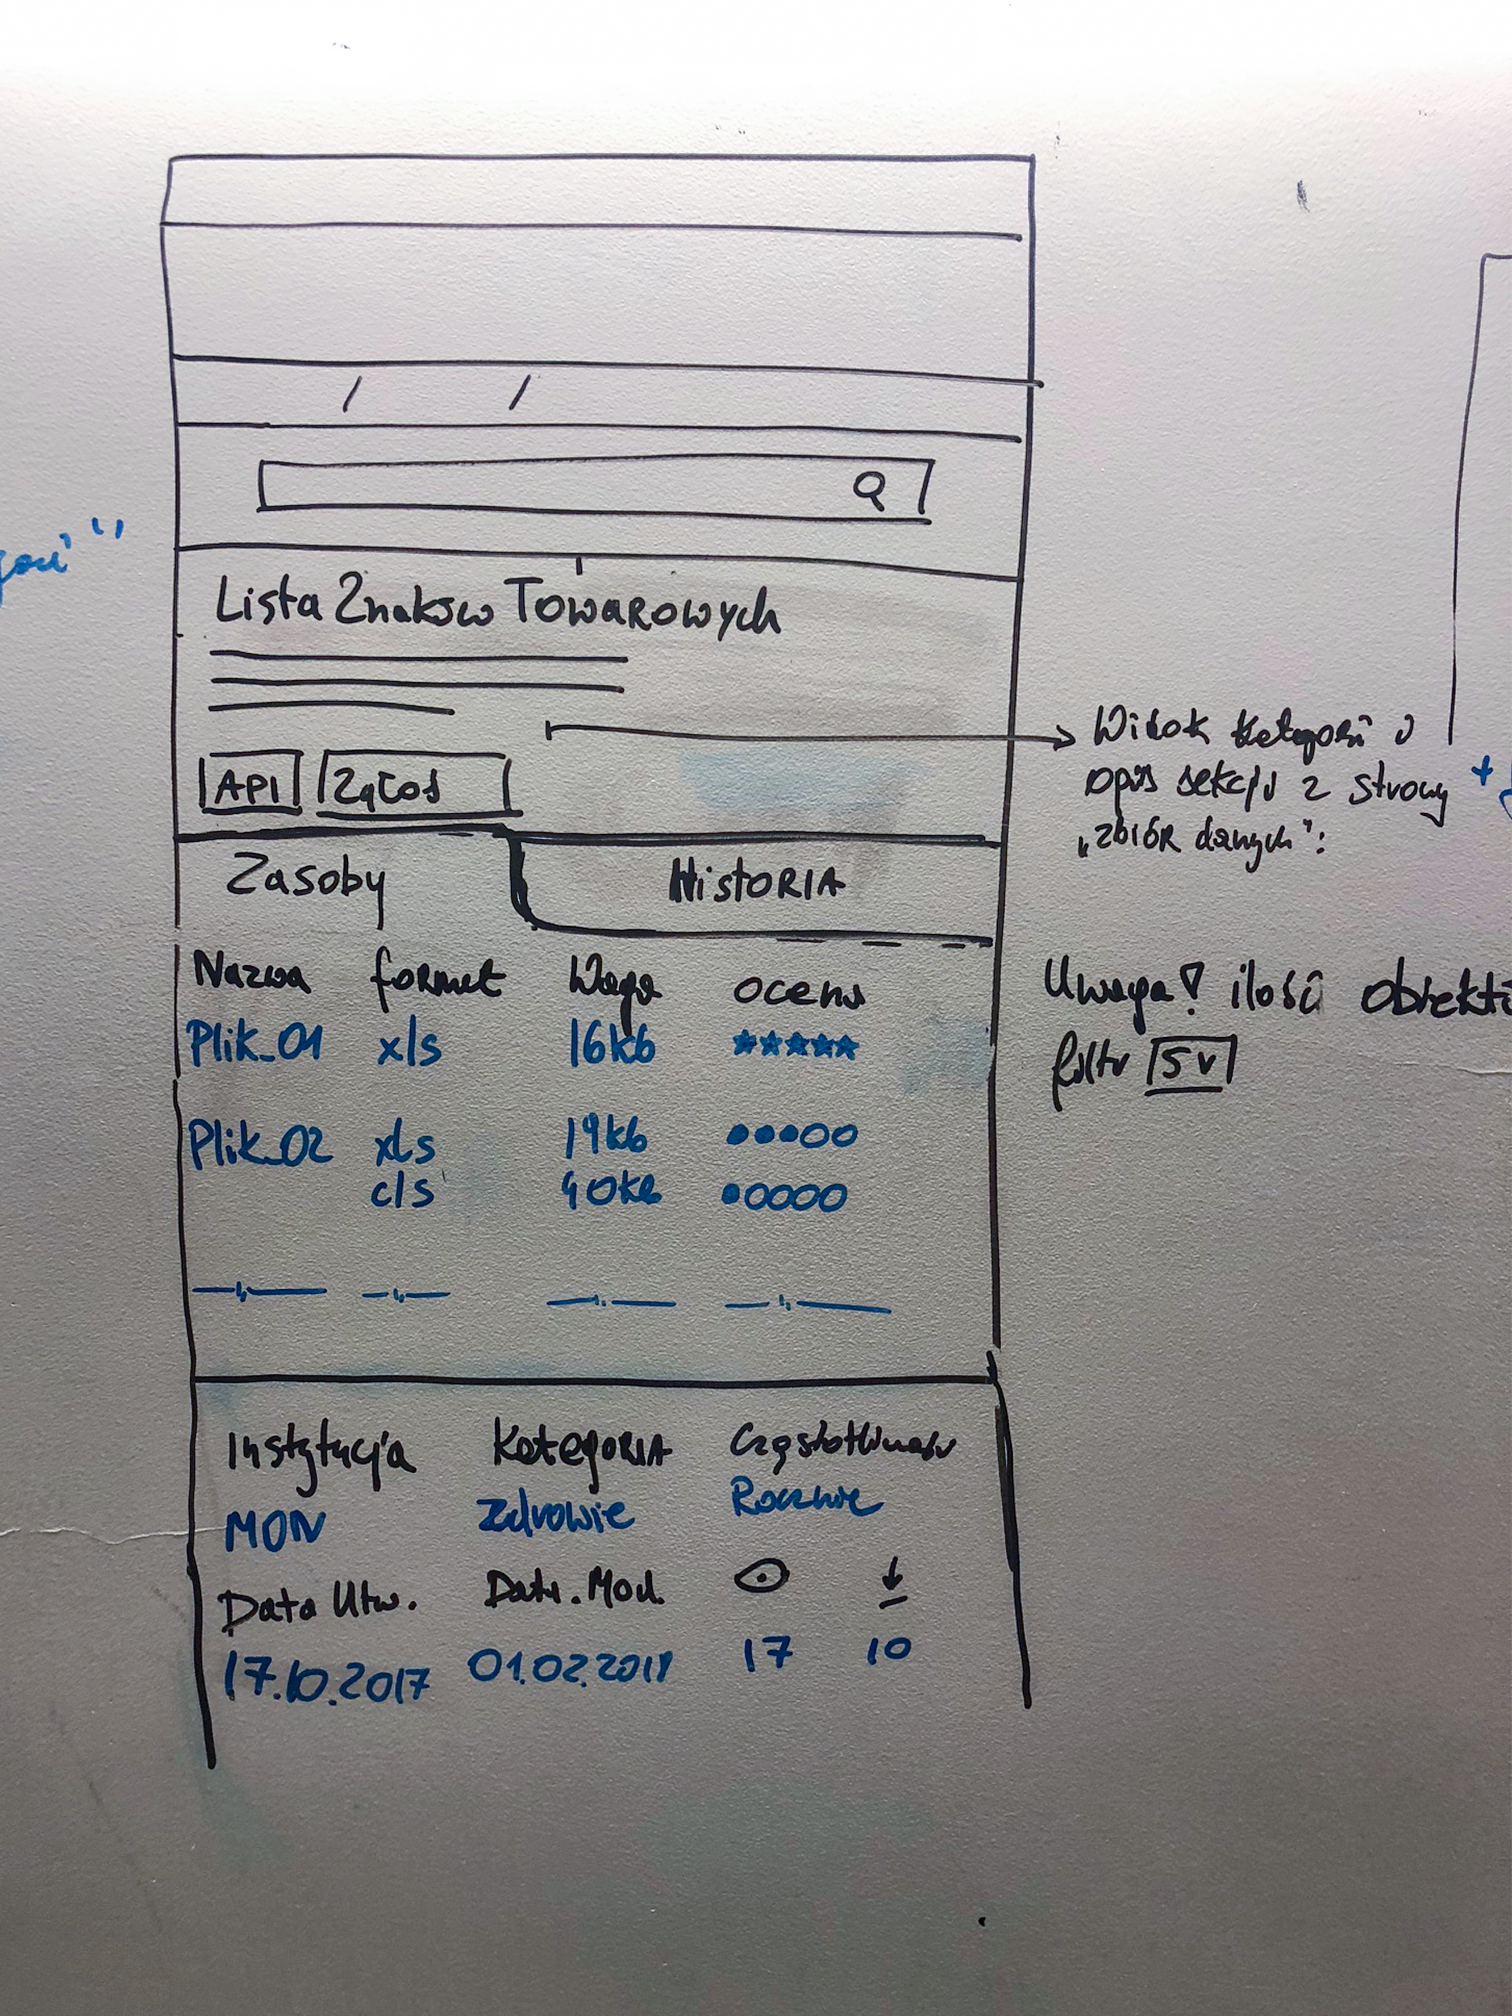 Lista Znaków Towarowych
API Zgłoś
Zasoby Historia
Nazwa format Waga ocena
Plik_01 xls 16kb
Plik_02 xls 19kb
cls 40kb
Instytucja Kategoria Częstotliwość
MON Zdrowie Rocznie
Data Utw. Data. Mod.
17.10.2017 01.02.2018 17 10
Widok kategorii i
opis sekcji z strony
„zbiór danych":
Uwaga! ilość
filtr 5 v
+